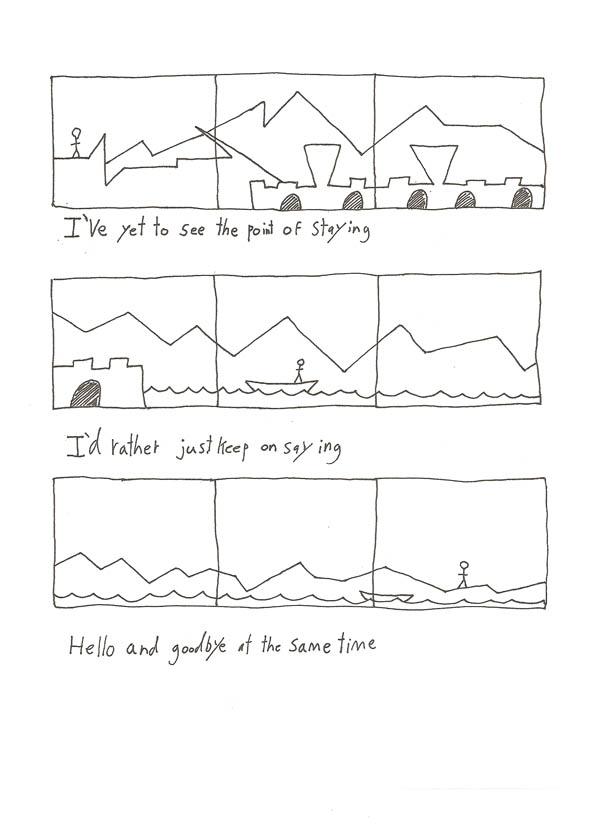 I've yet to see the point of staying
I'd rather just keep on saying
Hello and goodbye at the same time